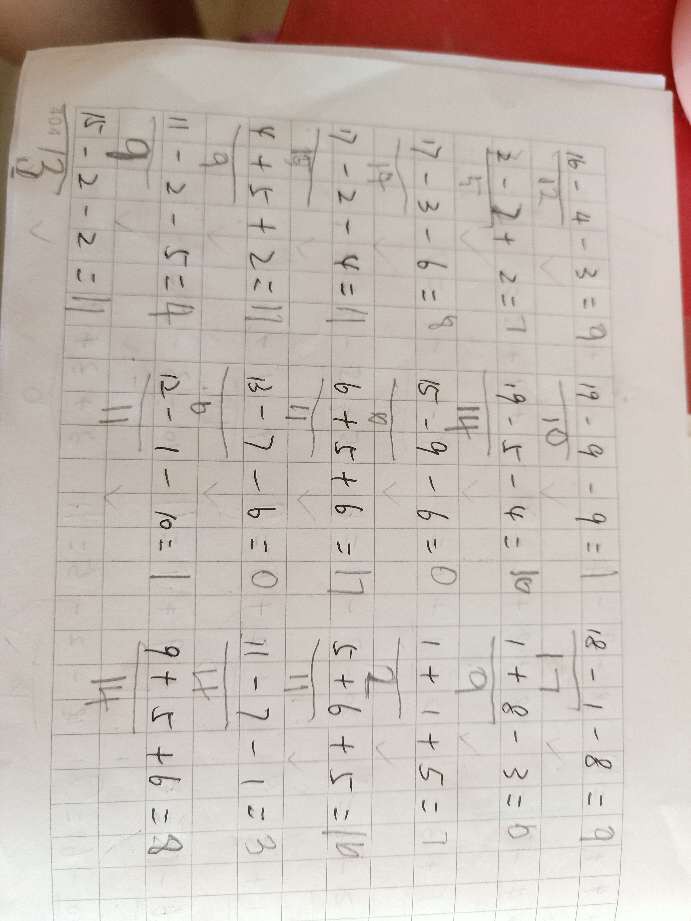 16 - 4 - 3 = 9 19 - 9 - 9 = 1 18 - 1 - 8 = 9
12 10 17
- 2 + 2 = 7 19 - 5 - 4 = 10 1 + 8 - 3 = 6
5 14 9
17 - 3 - 6 = 8 15 - 9 - 6 = 0 1 + 1 + 5 = 7
14 2
17 - 2 - 4 = 11 6 + 5 + 6 = 17 5 + 6 + 5 = 16
15 11 11
4 + 5 + 2 = 11 13 - 7 - 6 = 0 11 - 7 - 1 = 3
9 6 4
11 - 2 - 5 = 4 12 - 1 - 10 = 1 9 + 5 + 6 = 8
9 11 14
15 - 2 - 2 = 11
13